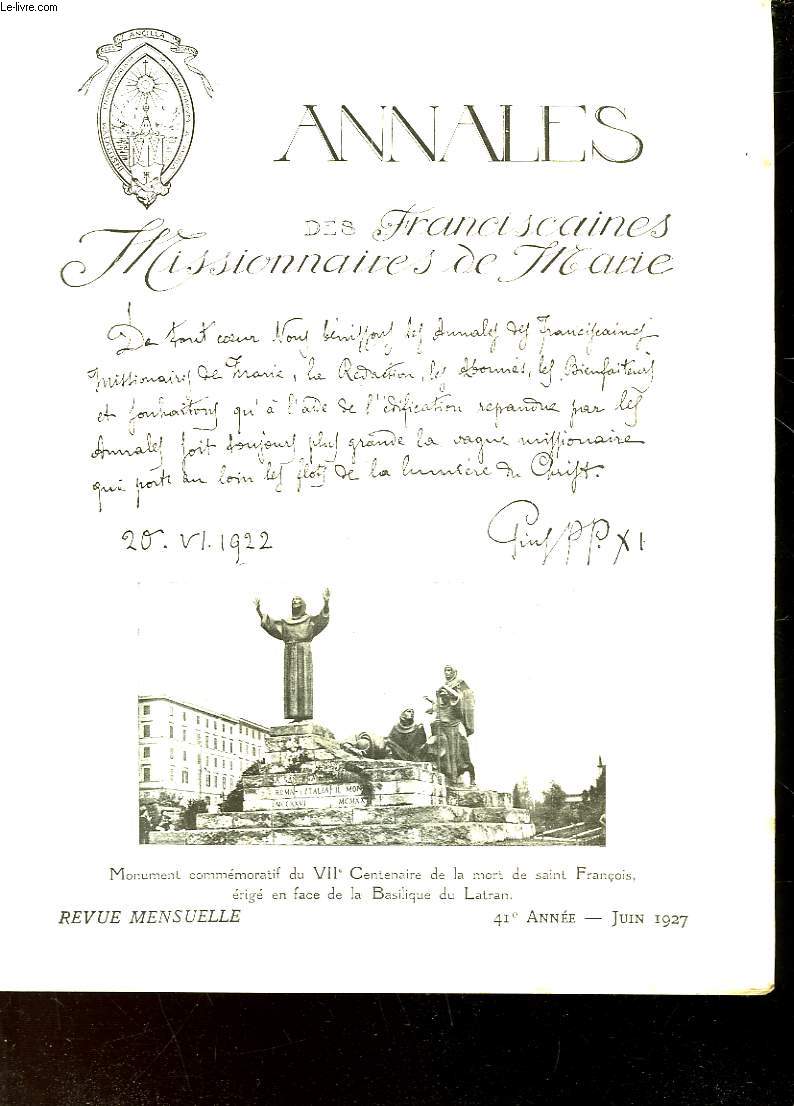 Le-livre.com
ANCILLA
ANNALES
DES Franciscaines
Missionnaires de Marie
De tout cœur Nous bénissons les Annales des Franciscaines
Missionaires de Marie, la Rédaction, les Abonnés, les Bienfaiteurs
et souhaitons qu'à l'aide de l'édification repandue par les
Annales soit toujours plus grande la vague missionaire
qui porte au loin les flots de la lumière du Christ.
20. VI. 1922 Pius PP. XI
ROMA L'ITALIA IL MON
MCCXXVI MCMXX
Monument commémoratif du VIIe Centenaire de la mort de saint François,
érigé en face de la Basilique du Latran.
REVUE MENSUELLE 41e ANNÉE — JUIN 1927